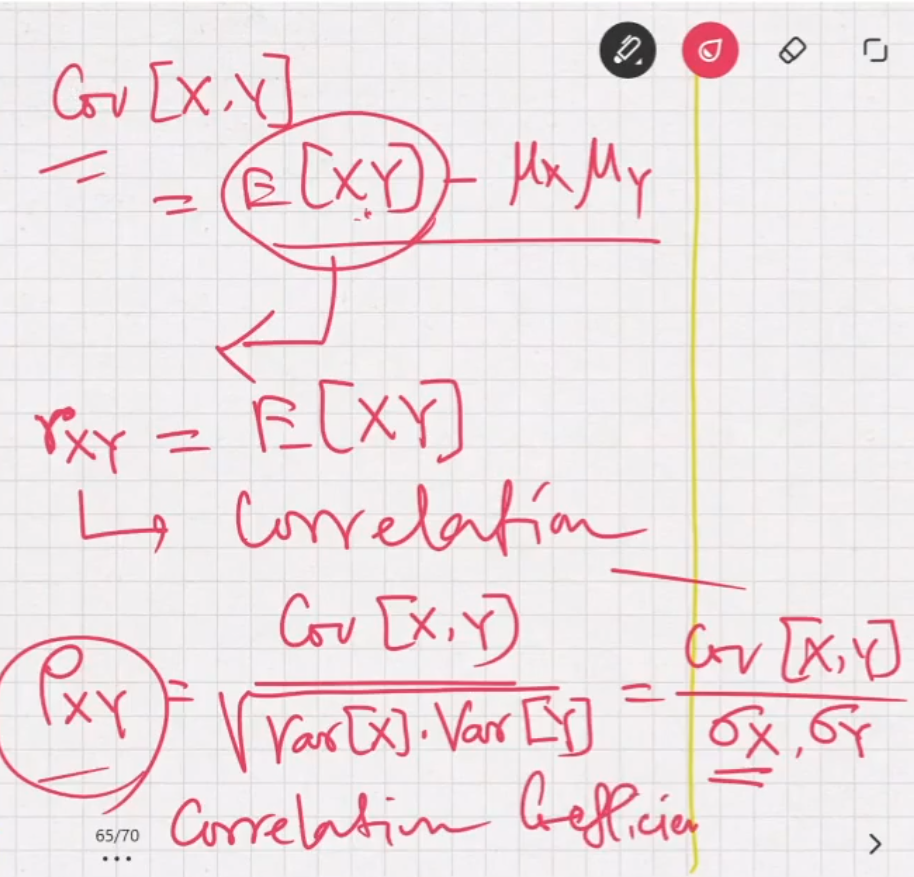 Cov [X,Y]
= E[XY] - μX μY
rXY = E[XY]
↳ Correlation
ρXY = Cov [X,Y] / √Var[X]·Var[Y] = Cov [X,Y] / σX, σY
Correlation Coefficien
65/70